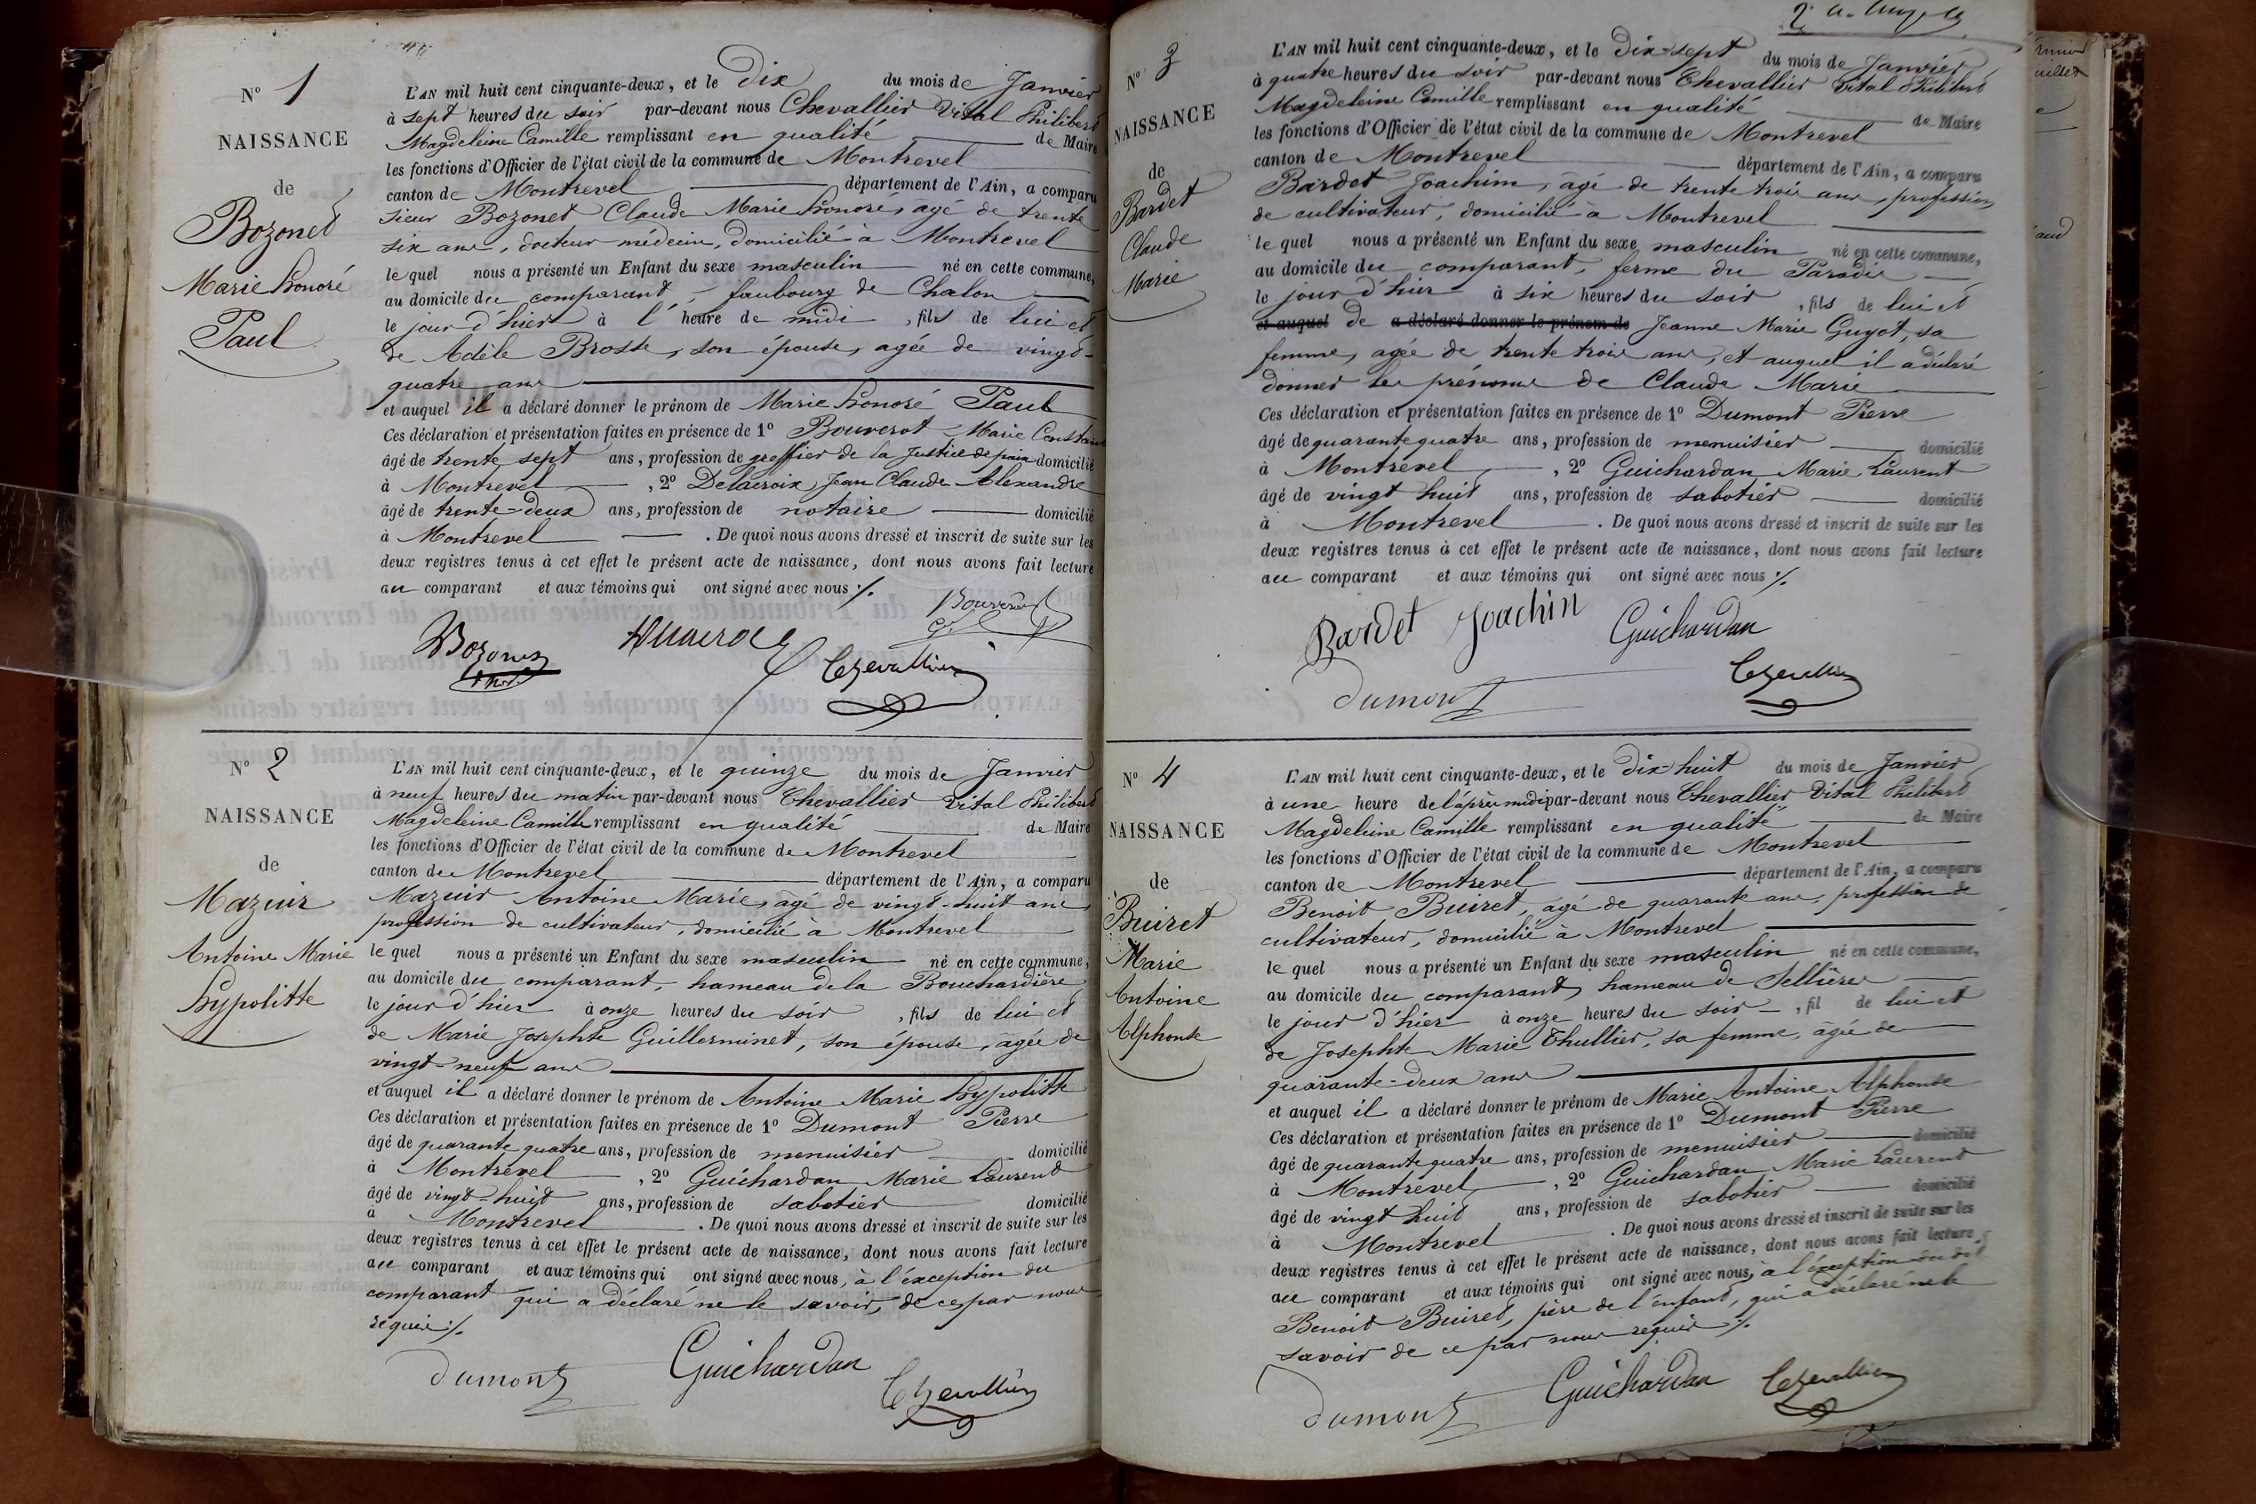 N° 1
NAISSANCE
de
Bozonet
Marie honoré
Paul
L'AN mil huit cent cinquante-deux, et le Dix du mois de Janvier
à sept heures du soir par-devant nous Chevallier Vital Philibert
Magdeleine Camille remplissant en qualité de Maire
les fonctions d'Officier de l'état civil de la commune de Montrevel
canton de Montrevel département de l'Ain, a comparu
sieur Bozonet Claude Marie honoré, âgé de trente
six ans, docteur médecin, domicilié à Montrevel
lequel nous a présenté un Enfant du sexe masculin né en cette commune,
au domicile du comparant, faubourg de Chalon
le jour d'hier à l'heure de midi, fils de lui et
de Adèle Brosse, son épouse, agée de vingt-
quatre ans
et auquel il a déclaré donner le prénom de Marie honoré Paul
Ces déclaration et présentation faites en présence de 1° Bouverot Marie Constant
âgé de trente sept ans, profession de greffier de la Justice de paix domicilié
à Montrevel, 2° Delacroix Jean Claude Alexandre
âgé de trente-deux ans, profession de notaire domicilié
à Montrevel. De quoi nous avons dressé et inscrit de suite sur les
deux registres tenus à cet effet le présent acte de naissance, dont nous avons fait lecture
au comparant et aux témoins qui ont signé avec nous ./.
Bouverot
Bozonet
Chevallier
N° 2
NAISSANCE
de
Mazuir
Antoine Marie
hypolitte
L'AN mil huit cent cinquante-deux, et le quinze du mois de Janvier
à neuf heures du matin par-devant nous Chevallier Vital Philibert
Magdeleine Camille remplissant en qualité de Maire
les fonctions d'Officier de l'état civil de la commune de Montrevel
canton de Montrevel département de l'Ain, a comparu
Mazuir Antoine Marie, âgé de vingt-huit ans,
profession de cultivateur, domicilié à Montrevel
lequel nous a présenté un Enfant du sexe masculin né en cette commune,
au domicile du comparant, hameau de la Bouchardière
le jour d'hier à onze heures du soir, fils de lui et
de Marie Josephte Guillerminet, son épouse, âgée de
vingt-neuf ans
et auquel il a déclaré donner le prénom de Antoine Marie hypolitte
Ces déclaration et présentation faites en présence de 1° Dumont Pierre
âgé de quarante quatre ans, profession de menuisier domicilié
à Montrevel, 2° Guichardan Marie Laurent
âgé de vingt-huit ans, profession de sabotier domicilié
à Montrevel. De quoi nous avons dressé et inscrit de suite sur les
deux registres tenus à cet effet le présent acte de naissance, dont nous avons fait lecture
au comparant et aux témoins qui ont signé avec nous, à l'exception du
comparant qui a déclaré ne le savoir, de ce par nous
requis ./.
Dumont
Guichardan
Chevallier
N° 3
NAISSANCE
de
Bardet
Claude
Marie
L'AN mil huit cent cinquante-deux, et le Dix-sept du mois de Janvier
à quatre heures du soir par-devant nous Chevallier Vital Philibert
Magdeleine Camille remplissant en qualité de Maire
les fonctions d'Officier de l'état civil de la commune de Montrevel
canton de Montrevel département de l'Ain, a comparu
Bardet Joachim, âgé de trente trois ans, profession
de cultivateur, domicilié à Montrevel
lequel nous a présenté un Enfant du sexe masculin né en cette commune,
au domicile du comparant, ferme du Paradis
le jour d'hier à six heures du soir, fils de lui et
et auquel de a déclaré donner le prénom de Jeanne Marie Guyot, sa
femme, agée de trente trois ans, et auquel il a déclaré
donner les prénoms de Claude Marie
Ces déclaration et présentation faites en présence de 1° Dumont Pierre
âgé de quarante quatre ans, profession de menuisier domicilié
à Montrevel, 2° Guichardan Marie Laurent
âgé de vingt huit ans, profession de sabotier domicilié
à Montrevel. De quoi nous avons dressé et inscrit de suite sur les
deux registres tenus à cet effet le présent acte de naissance, dont nous avons fait lecture
au comparant et aux témoins qui ont signé avec nous ./.
Bardet Joachin
Guichardan
Dumont
Chevallier
N° 4
NAISSANCE
de
Buiret
Marie
Antoine
Alphonse
L'AN mil huit cent cinquante-deux, et le Dix huit du mois de Janvier
à une heure de l'après midi par-devant nous Chevallier Vital Philibert
Magdeleine Camille remplissant en qualité de Maire
les fonctions d'Officier de l'état civil de la commune de Montrevel
canton de Montrevel département de l'Ain, a comparu
Benoit Buiret, âgé de quarante ans, profession de
cultivateur, domicilié à Montrevel
lequel nous a présenté un Enfant du sexe masculin né en cette commune,
au domicile du comparant, hameau de Sellières
le jour d'hier à onze heures du soir, fil de lui et
de Josephte Marie Thullier, sa femme, âgée de
quarante-deux ans
et auquel il a déclaré donner le prénom de Marie Antoine Alphonse
Ces déclaration et présentation faites en présence de 1° Dumont Pierre
âgé de quarante quatre ans, profession de menuisier domicilié
à Montrevel, 2° Guichardan Marie Laurent
âgé de vingt huit ans, profession de sabotier domicilié
à Montrevel. De quoi nous avons dressé et inscrit de suite sur les
deux registres tenus à cet effet le présent acte de naissance, dont nous avons fait lecture
au comparant et aux témoins qui ont signé avec nous, à l'exception du dit
Benoit Buiret, père de l'enfant, qui a déclaré ne le
savoir de ce par nous requis ./.
Dumont
Guichardan
Chevallier